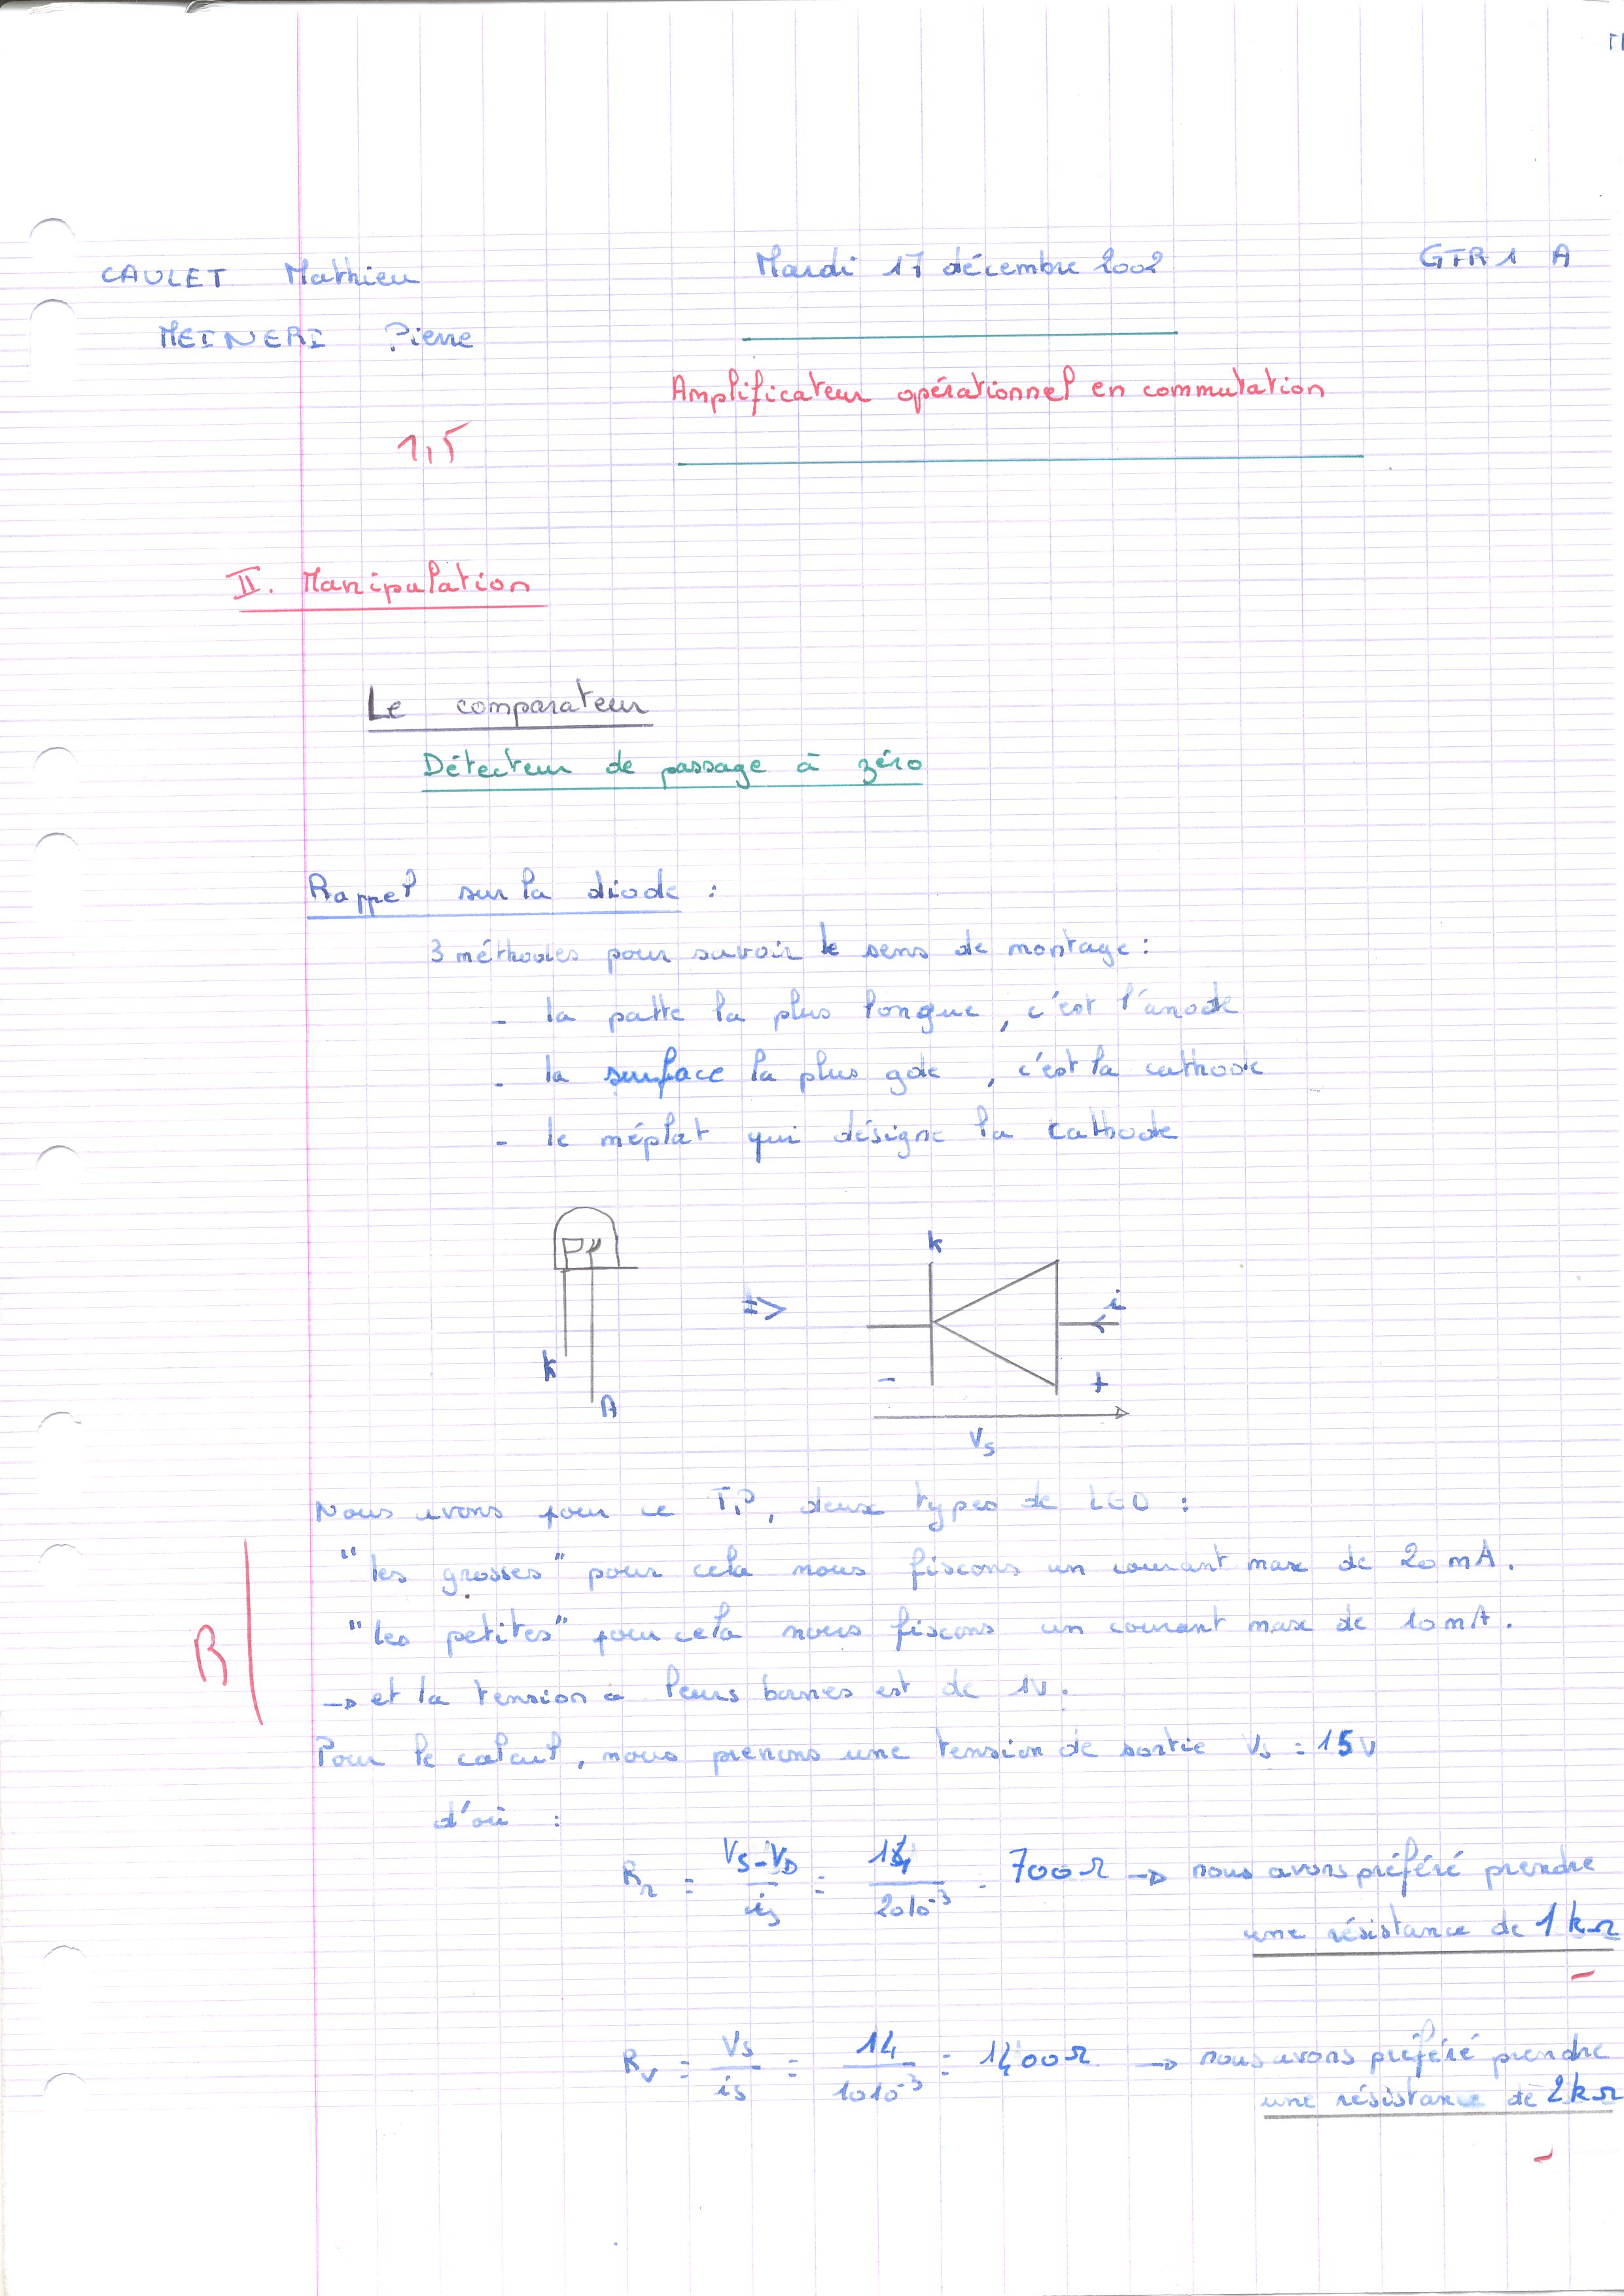 CAULET Mathieu
Mardi 17 décembre 2002
GTR1 A
MEINERI Pierre
Amplificateur opérationnel en commutation
1,5
II. Manipulation
Le comparateur
Détecteur de passage à zéro
Rappel sur la diode :
3 méthodes pour savoir le sens de montage :
- la patte la plus longue, c'est l'anode
- la surface la plus gde, c'est la cathode
- le méplat qui désigne la cathode
K
A
=>
K
i
-
+
Vs
Nous avons pour ce TP, deux types de LED :
"les grosses" pour cela nous fixons un courant max de 20 mA.
"les petites" pour cela nous fixons un courant max de 10 mA.
R
→ et la tension à leurs bornes est de 1V.
Pour le calcul, nous prenons une tension de sortie Vs = 15V
d'où :
Rr = (Vs - VD)/is = 14/(20 10^-3) = 700Ω → nous avons préféré prendre
une résistance de 1kΩ
Rv = Vs/is = 14/(10 10^-3) = 1400Ω → nous avons préféré prendre
une résistance de 2kΩ